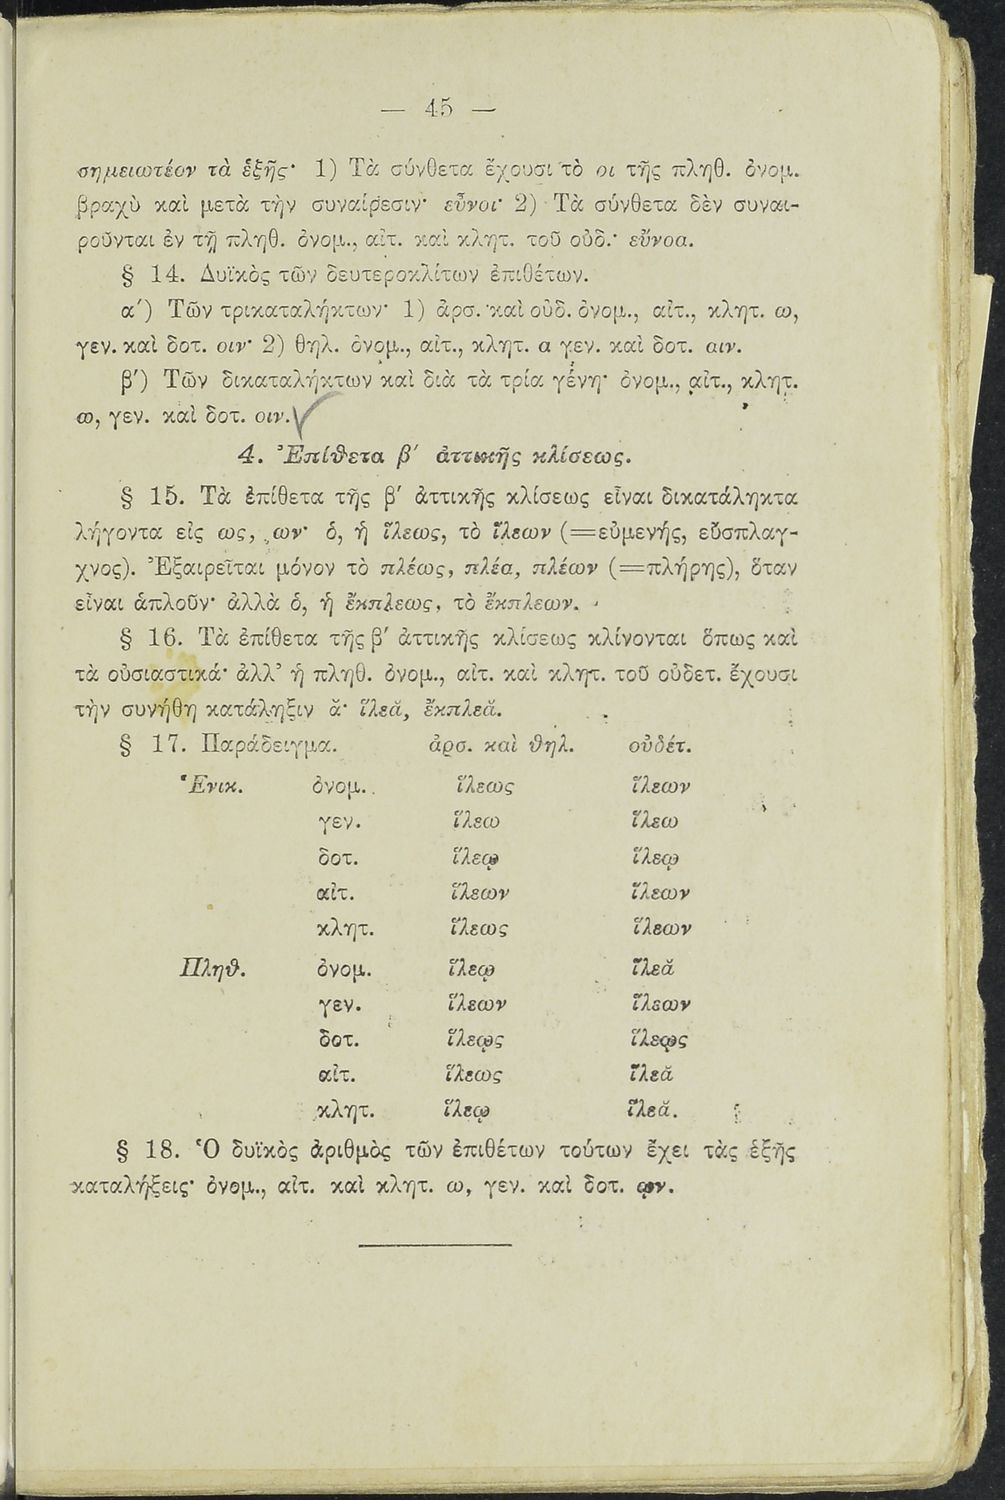 — 45 —
σημειωτέον τὰ ἑξῆς· 1) Τὰ σύνθετα ἔχουσι τὸ οι τῆς πληθ. ὀνομ.
βραχὺ καὶ μετὰ τὴν συναίρεσιν· εὖνοι· 2) Τὰ σύνθετα δὲν συναι-
ροῦνται ἐν τῇ πληθ. ὀνομ., αἰτ. καὶ κλητ. τοῦ οὐδ.· εὔνοα.
§ 14. Δυϊκὸς τῶν δευτεροκλίτων ἐπιθέτων.
α΄) Τῶν τρικαταλήκτων· 1) ἀρσ. καὶ οὐδ. ὀνομ., αἰτ., κλητ. ω,
γεν. καὶ δοτ. οιν· 2) θηλ. ὀνομ., αἰτ., κλητ. α γεν. καὶ δοτ. αιν.
β΄) Τῶν δικαταλήκτων καὶ διὰ τὰ τρία γένη· ὀνομ., αἰτ., κλητ.
ω, γεν. καὶ δοτ. οιν.
4. Ἐπίθετα β΄ ἀττικῆς κλίσεως.
§ 15. Τὰ ἐπίθετα τῆς β΄ ἀττικῆς κλίσεως εἶναι δικατάληκτα
λήγοντα εἰς ως, ων· ὁ, ἡ ἵλεως, τὸ ἵλεων (=εὐμενής, εὔσπλαγ-
χνος). Ἐξαιρεῖται μόνον τὸ πλέως, πλέα, πλέων (=πλήρης), ὅταν
εἶναι ἁπλοῦν· ἀλλὰ ὁ, ἡ ἔκπλεως, τὸ ἔκπλεων.
§ 16. Τὰ ἐπίθετα τῆς β΄ ἀττικῆς κλίσεως κλίνονται ὅπως καὶ
τὰ οὐσιαστικά· ἀλλ’ ἡ πληθ. ὀνομ., αἰτ. καὶ κλητ. τοῦ οὐδετ. ἔχουσι
τὴν συνήθη κατάληξιν ᾰ· ἵλεᾰ, ἔκπλεᾰ.
§ 17. Παράδειγμα. ἀρσ. καὶ θηλ. οὐδέτ.
Ἑνικ. ὀνομ. ἵλεως ἵλεων
γεν. ἵλεω ἵλεω
δοτ. ἵλεῳ ἵλεῳ
αἰτ. ἵλεων ἵλεων
κλητ. ἵλεως ἵλεων
Πληθ. ὀνομ. ἵλεῳ ἵλεᾰ
γεν. ἵλεων ἵλεων
δοτ. ἵλεῳς ἵλεῳς
αἰτ. ἵλεως ἵλεᾰ
κλητ. ἵλεῳ ἵλεᾰ.
§ 18. Ὁ δυϊκὸς ἀριθμὸς τῶν ἐπιθέτων τούτων ἔχει τὰς ἑξῆς
καταλήξεις· ὀνομ., αἰτ. καὶ κλητ. ω, γεν. καὶ δοτ. ῳν.